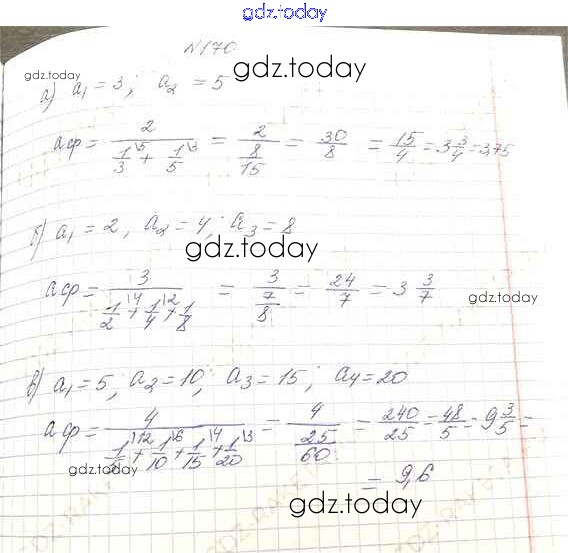 gdz.today
N170
gdz.today
gdz.today
а) a₁ = 3; a₂ = 5
aф = 2/(1/3\5 + 1/5\3) = 2/(8/15) = 30/8 = 15/4 = 3 3/4 = 3,75
б) a₁ = 2, a₂ = 4; a₃ = 8
gdz.today
aф = 3/(1/2\4 + 1/4\2 + 1/8) = 3/(7/8) = 24/7 = 3 3/7
gdz.today
в) a₁ = 5; a₂ = 10; a₃ = 15; a₄ = 20
aф = 4/(1/5\12 + 1/10\6 + 1/15\4 + 1/20\3) = 4/(25/60) = 240/25 = 48/5 = 9 3/5 =
gdz.today
= 9,6
gdz.today